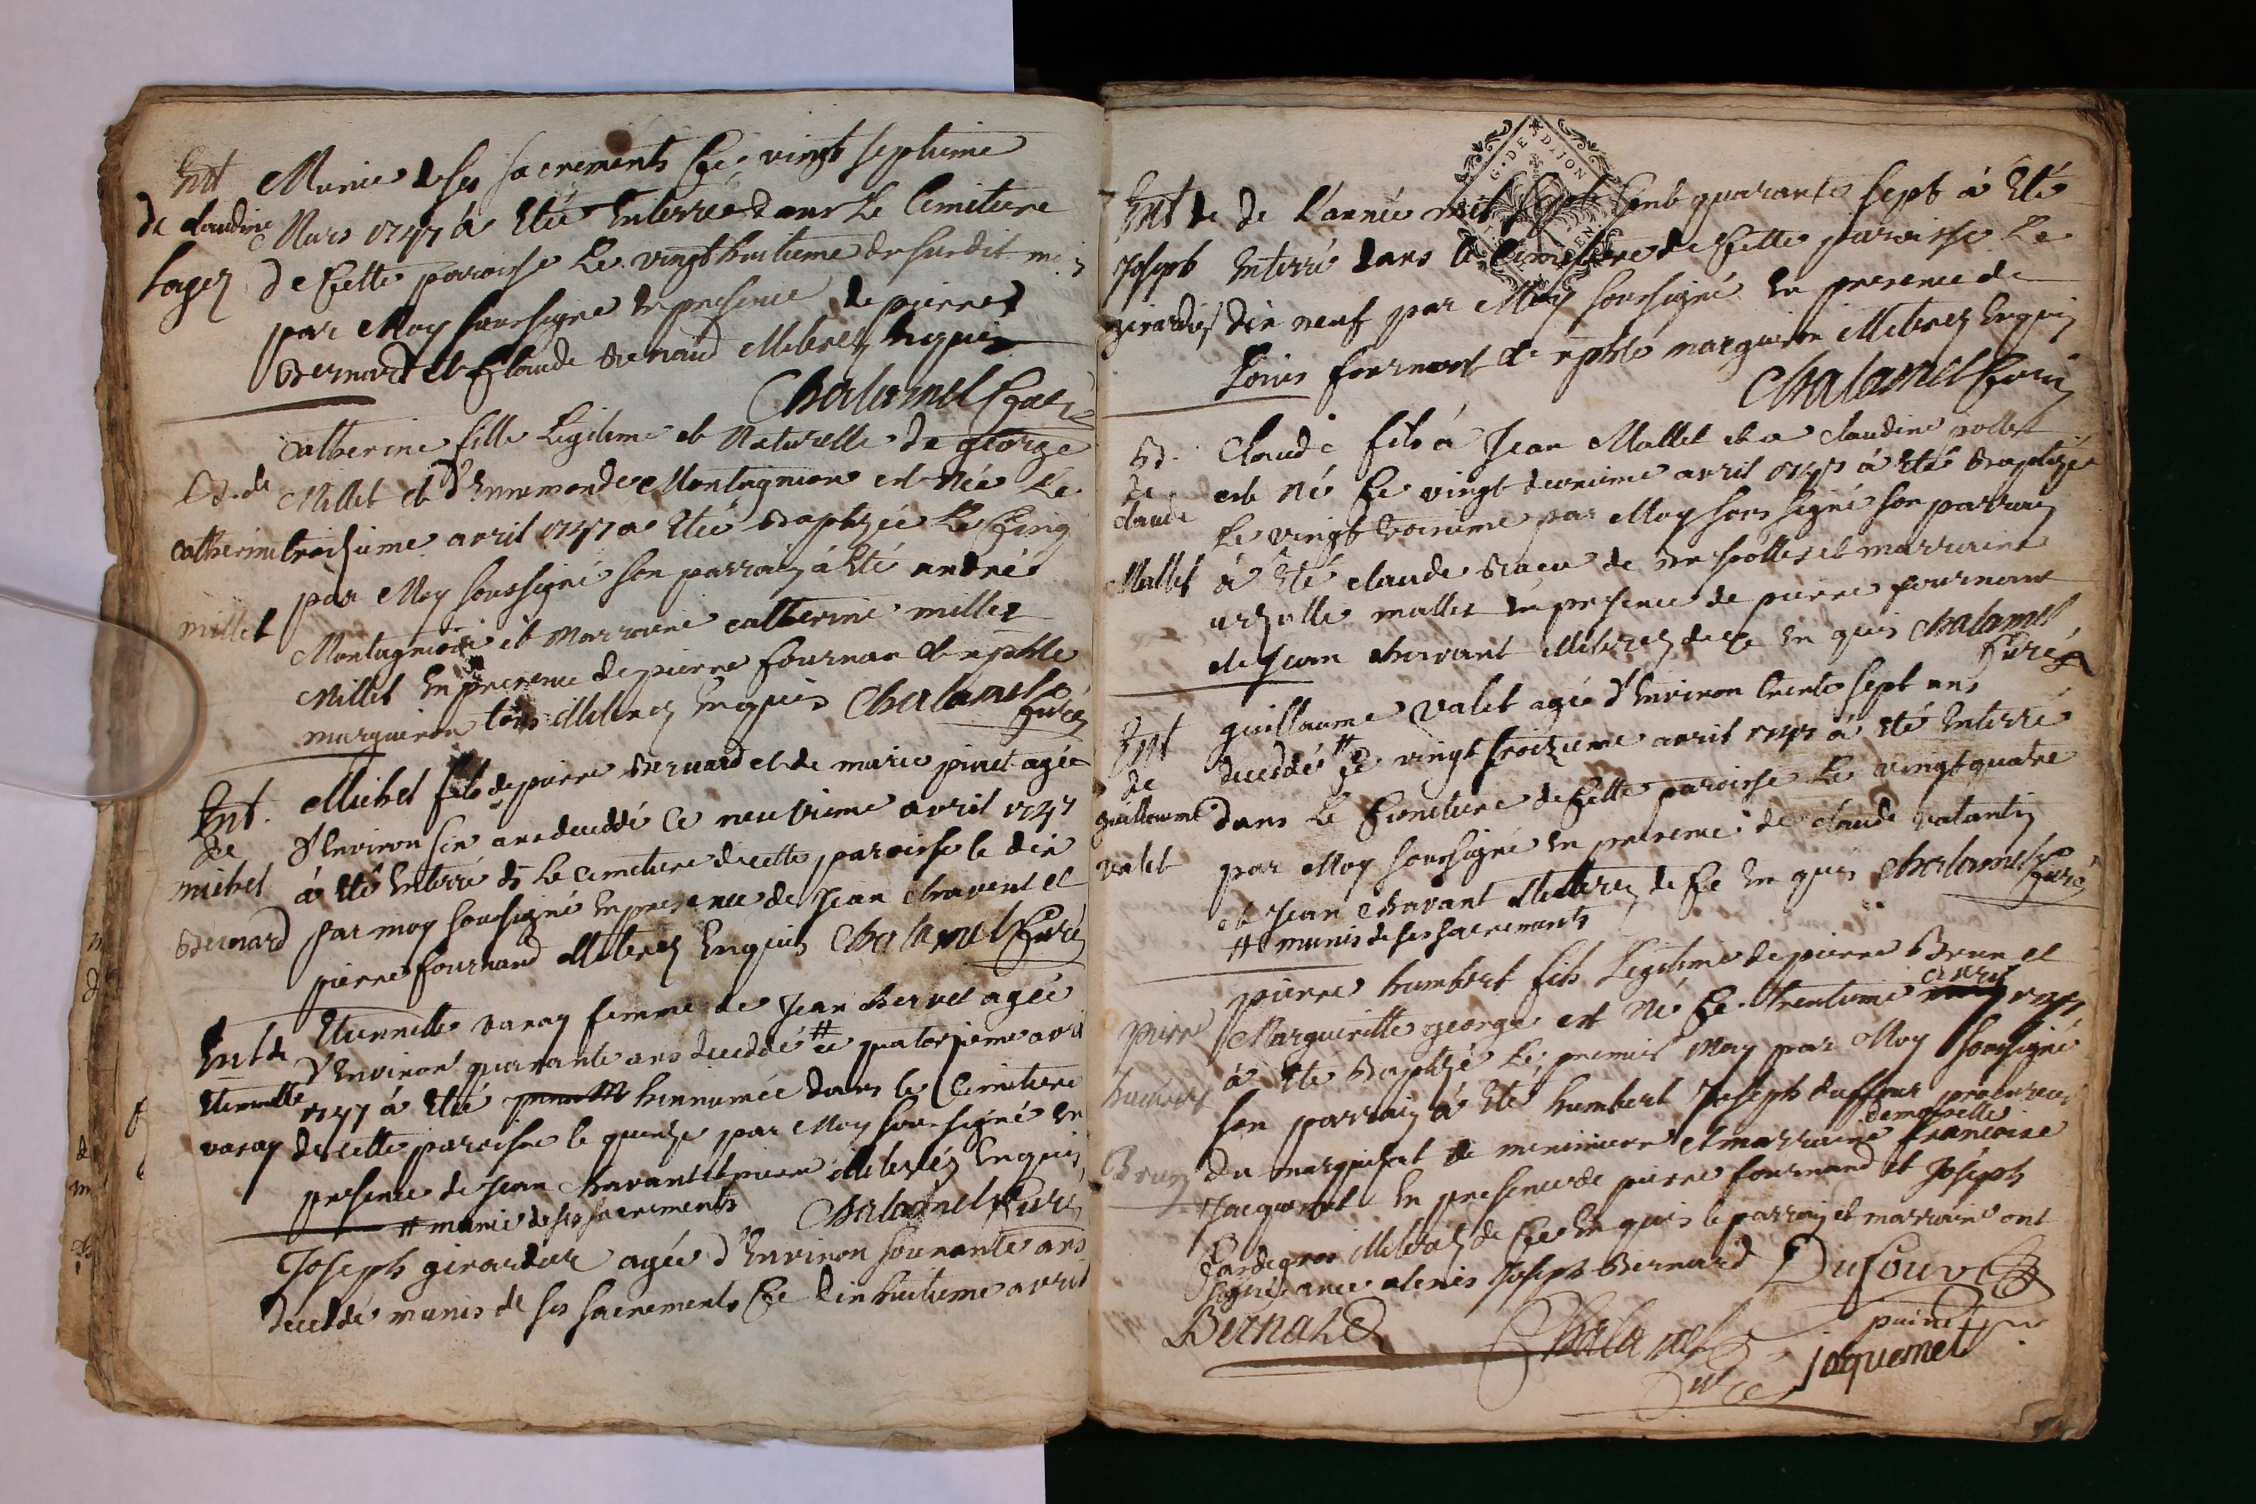 Ent
de claudine
Loger
Munie de ses sacrements Ce vingt septieme
Mars 1747 à Eté Enterrée dans Le Cimitiere
de Cette paroisse Le vingt huitieme du susdit mois
par Moy soussigné En presence de pierre
Bernard et Claude Bernard Illiterez Enquis
Chalamel Curé
B. de
catherine
millet
catherine fille Legitime et Naturelle de george
Millet et d'Ennemonde Montagnion est Née Le
troisieme avril 1747 a Eté Baptizée Le Cinq
par Moy soussigné son parrain à Eté andré
Montagnion et Marraine catherine millet
Millet En presence de pierre fournan et
marguiron tous Illiterez Enquis Chalamel
Curé
Ent.
de
michel
Bernard
Michel fils de pierre Bernard et de marie pinet agé
d'Environ six ans deceddé Ce neuvieme avril 1747
à Eté Enterré ds Le Cemetiere de cette paroisse le dix
par moy soussigné En presence de Jean Chavent et
pierre fournand Illiterez Enquis Chalamel Curé
Ent de
Etiennette
varay
Etiennette varay femme de Jean Bervet agée
d'Environ quarante ans deceddé # ce quatorzieme avril
1747 à Eté hinnumée dans le Cimitiere
de cette paroisse le quinze par Moy soussigné En
presence de Jean Chavant et pierre Illiterez Enquis
# munie de ses sacrements Chalamel Curé
Joseph girardier agée d'Environ soixante ans
deceddé munis de ses sacrements Ce dix huitieme avril
G. DE DIJON
Ent de
Joseph
girardier
de L'année mil sept Cent quarante sept à Eté
Enterré dans le Cimitiere de Cette paroisse Le
dix neuf par Moy soussigné En presence de
Louis fournand et marguiron Illiterez Enquis
Chalamel Curé
B.
de
claude
Mallet
Claude fils à Jean Mallet et a claudine pollet
est né Ce vingt deuxieme avril 1747 à Eté Baptizé
Le vingt troisieme par Moy sous signé son parrain
à Eté claude et marraine
mallet En presence de pierre fournand
et Jean chavant Illiterez de ce En quis Chalamel
Curé
Ent
de
guillaume
valet
guillaume valet agé d'Environ trente sept ans
deceddé # Ce vingt troizieme avril 1747 à Eté Enterré
dans Le Cimetiere de Cette paroisse Le vingt quatre
par Moy soussigné En presence de claude valantin
et Jean Chavant Illiterez de Ce En quis Chalamel Curé
# munis de ses sacrements
pierre
humbert
Brun
pierre humbert fils Legitime de pierre Brun et
Margueritte george est Né Ce trentieme avril 1747
à Eté Baptizé Le premier May par Moy soussigné
son parrain à Eté humbert Joseph duffour procureur
du marquisat de et marraine demoiselle francoise
Jacquemet En presence de pierre fournand et Joseph
Illiterez de Ce En quis le parrain et marraine ont
signé avec alexis Joseph Bernard Dufour
Bernard Chalamel
Curé
jaquemet